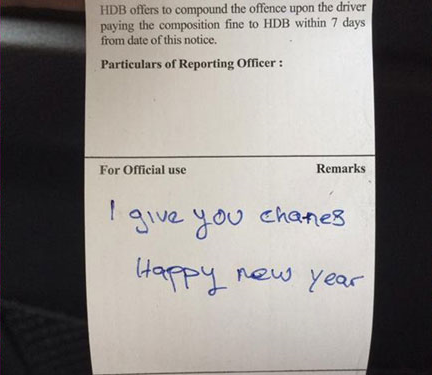 HDB offers to compound the offence upon the driver
paying the composition fine to HDB within 7 days
from date of this notice.
Particulars of Reporting Officer :
For Official use Remarks
I give you chanes
Happy new year